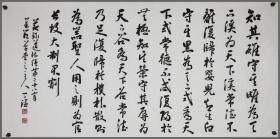 知其雄守其雌為天
下溪為天下溪常德不
離復歸於嬰兒知其白
守其黑為天下式為天
下式常德不忒復歸於
無極知其榮守其辱為
天下谷為天下谷常德
乃足復歸於樸樸散則
為器聖人用之則為官
長故大制不割
道德經第二十八章